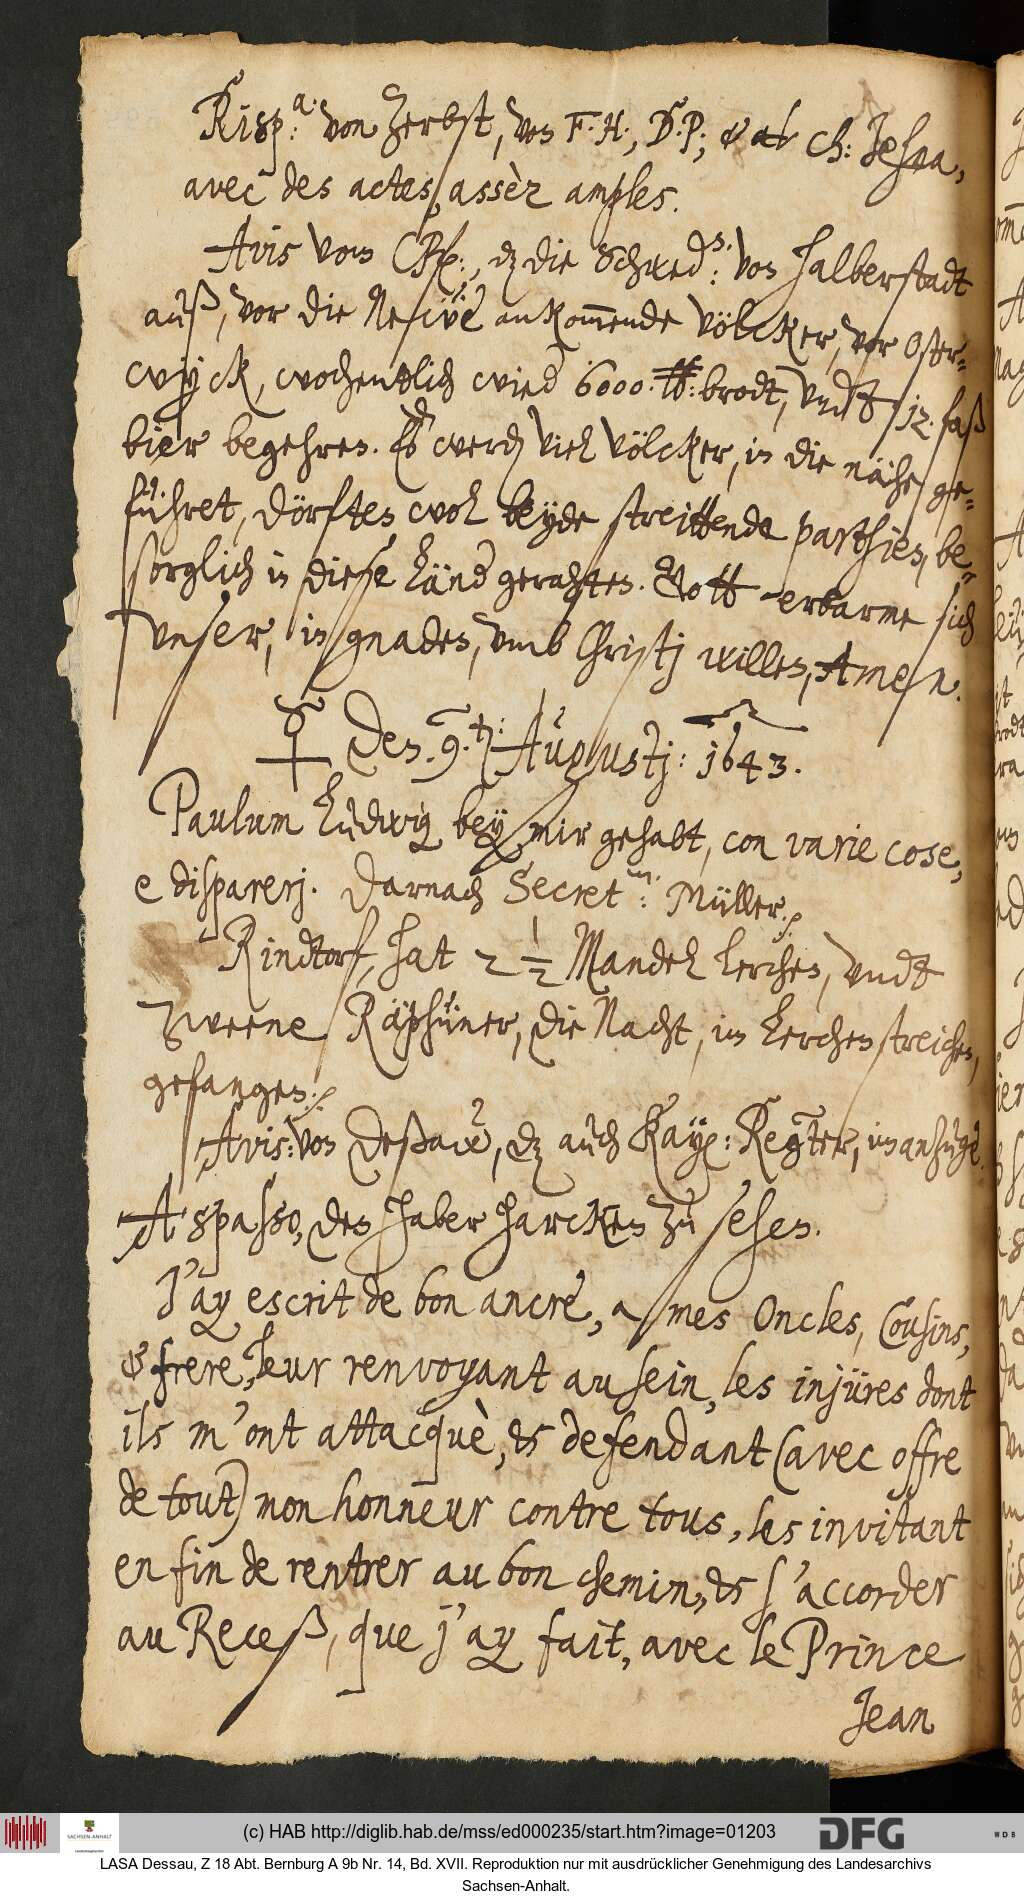 Risp:a von Zerbst, von F. H., D. P., & ab Ch: Jehna,
avec des actes, assèz amples.
Avis vom CPf:, dz die Schwed:n. von Halberstadt
auß, vor die Nesüve ankommende völcker, vor Oster-
wyck, wochentlich wied 6000. ℔: brodt, vndt 12. faß
bier begehren. Es werden viel völcker, in die nähe ge-
führet, dörften wol beyde streittende parthien, be-
sorglich in diese Länd gerahten. Gott erbarme sich
vnser, in gnaden, vmb Christj willen, Amen.
☿ den 9.ten: Augustj: 1643.
Paulum Ludwig bey mir gehabt, con varie cose,
e disparerj. Darnach Secret:m. Müller.
Rindtorf, hat 2 1/2 Mandel Lerchen, vndt
zweene Räphüner, die Nacht, im Lerchenstreichen,
gefangen.
Avis: von Deßaw, dz auch Kays: Regter, im anzuge.
A spasso, den Haber harcken zu sehen.
J'ay escrit de bon ancre, a mes Oncles, Cousins,
& frere, leur renvoyant au sein, les injüres dont
ils m'ont attacquè, et defendant (avec offre
de tout) mon honneur contre tous, les invitant
en fin de rentrer au bon chemin, et s'accorder
au Receß, que j'ay fait, avec le Prince
Jean
(c) HAB http://diglib.hab.de/mss/ed000235/start.htm?image=01203
SACHSEN-ANHALT
DFG
WDB
LASA Dessau, Z 18 Abt. Bernburg A 9b Nr. 14, Bd. XVII. Reproduktion nur mit ausdrücklicher Genehmigung des Landesarchivs
Sachsen-Anhalt.